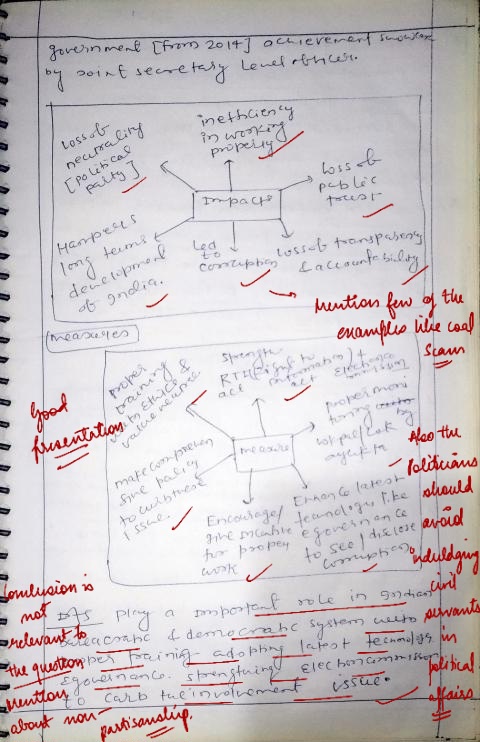 government [from 2014] achievement showcase
by joint secretary level officer.
loss of
neutrality
[political
party]
inefficiency
in working
properly
loss of
public
trust
Impacts
Hampers
long terms
development
of India.
Led
to
corruption
loss of transparency
& accountability
Mention few of the
examples like coal
scam
measures
proper
training &
with ethics &
value
Strength
RTI [right to information] +
act
act
Election
commission
proper moni
toring
by
Good
presentation
measure
make comprehen
sive policy
to
issue.
Encourage/
give incentive
for proper
work
Enhance latest
technology like
e governance
to see/disclose
corruption.
Also the
Politicians
should
avoid
indulging
civil
servants
in
political
affairs
Conclusion is
not
relevant to
the question
mention
about non-
partisanship.
IAS play a important role in Indian
& democratic system with
proper training, adopting latest technology
Egovernance. strengthing Election commission
to carb the involvement issue.